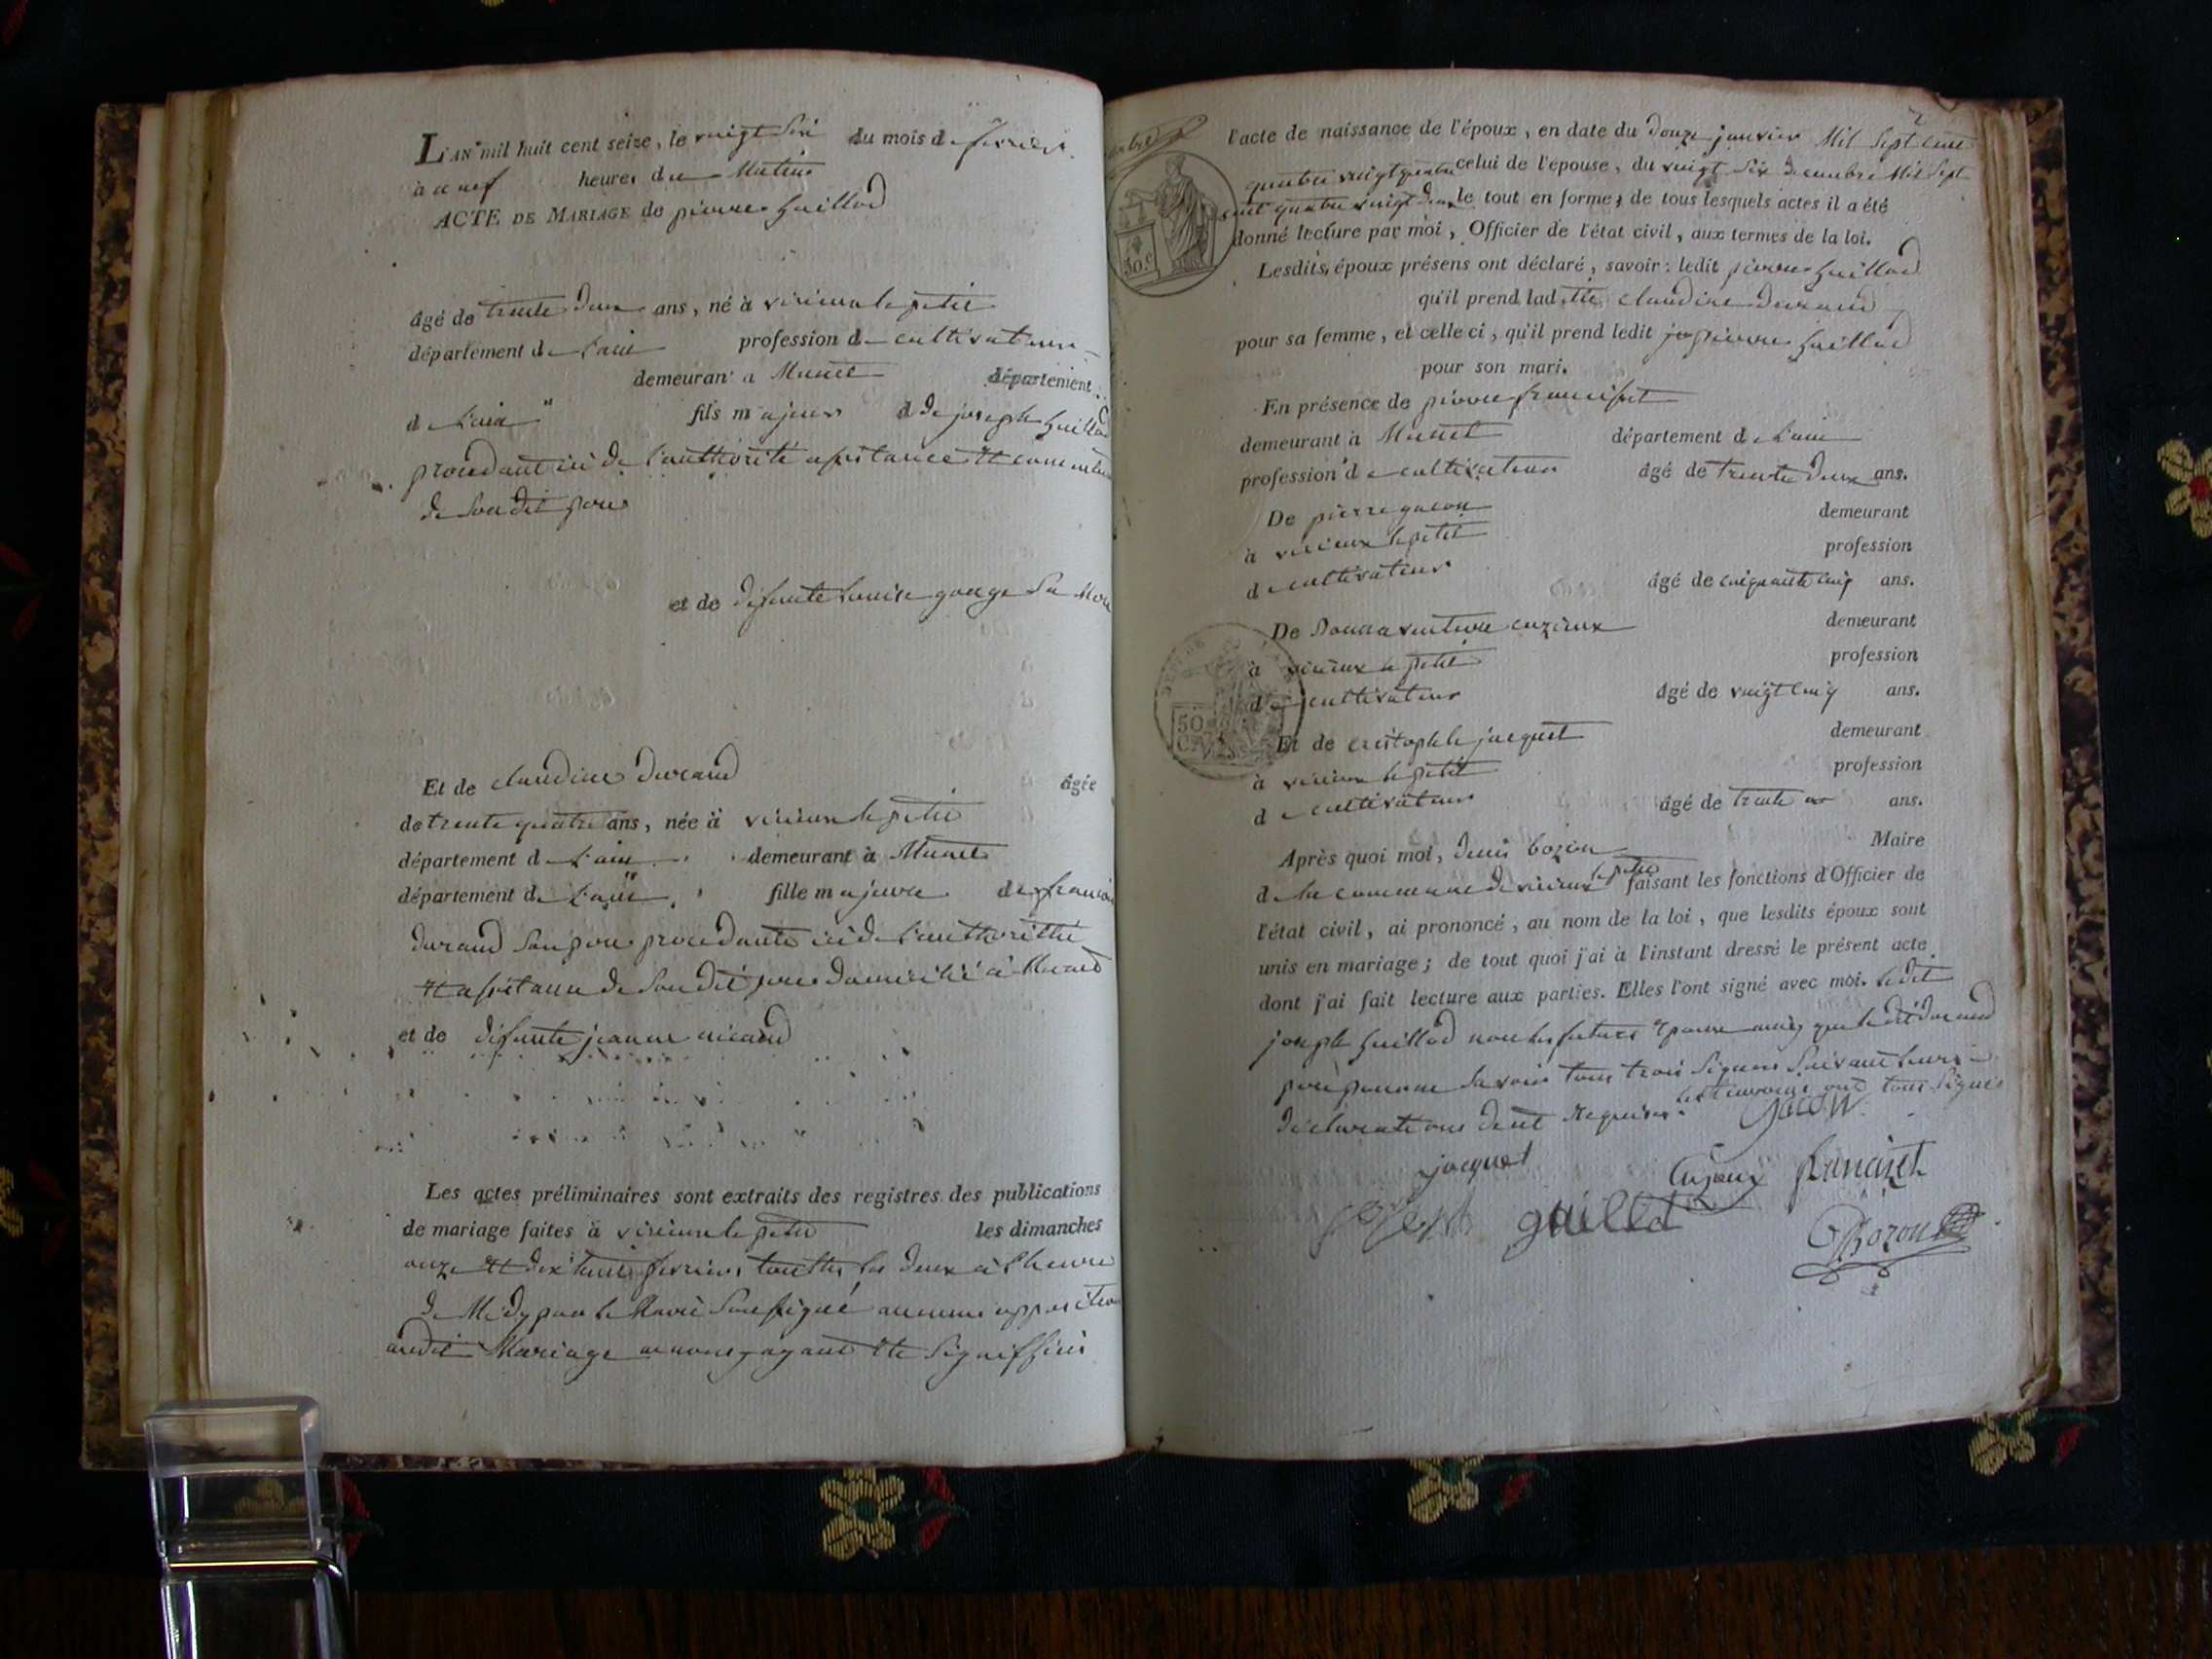 L'AN mil huit cent seize, le vingt six du mois de fevrier
à neuf heures du Matin
ACTE DE MARIAGE de pierre guillod
âgé de trente deux ans, né à virieux le petit
département de L'ain profession de cultivateur
demeurant à Munet département
de L'ain fils majeur de joseph guillod
procedant ici de L'authorité assistance et
de Son dit pere
et de defunte Louise gonge Sa Mere
Et de claudine durand âgée
de trente quatre ans, née à virieux le petit
département de L'ain demeurant à Munet
département de L'ain fille majeure de francois
durand Son pere procedante ici de L'authorithé
et assistance de Son dit pere domicilié à Munet
et de defunte jeanne
Les actes préliminaires sont extraits des registres des publications
de mariage faites à virieux le petit les dimanches
onze et dix huit fevrier touttes les deux à l'heure
de Midy par le Maire Sousigné aucune opposition
audit Mariage ayant été Signiffiée
l'acte de naissance de l'époux, en date du douze janvier Mil Sept cent
quatre vingt quatre celui de l'épouse, du vingt Six decembre Mil Sept
cent quatre vingt deux le tout en forme; de tous lesquels actes il a été
donné lecture par moi, Officier de l'état civil, aux termes de la loi.
Lesdits époux présens ont déclaré, savoir: ledit pierre guillod
qu'il prend ladite claudine durand
pour sa femme, et celle ci, qu'il prend ledit pierre guillod
pour son mari.
En présence de pierre franciset
demeurant à Munet département de L'ain
profession de cultivateur âgé de trente deux ans.
De pierre gacon demeurant
à virieux le petit profession
de cultivateur âgé de cinquante cinq ans.
De Bonnaventure cuzieux demeurant
à virieux le petit profession
de cultivateur âgé de vingt cinq ans.
50
Et de cristophle jacquet demeurant
à virieux le petit profession
de cultivateur âgé de trente ans.
Après quoi moi, denis bozon Maire
de la commune de virieux le petit faisant les fonctions d'Officier de
l'état civil, ai prononcé, au nom de la loi, que lesdits époux sont
unis en mariage; de tout quoi j'ai à l'instant dressé le présent acte
dont j'ai fait lecture aux parties. Elles l'ont signé avec moi. Ledit
joseph guillod non les futurs epoux ainsy que le dit durand
pere pour ne Savoir tous trois Signer Suivant leurs
declarations de ce requises. Les temoins ont tous Signés
gacon
jacquet Cujeux francizet
josept guilled Bozon